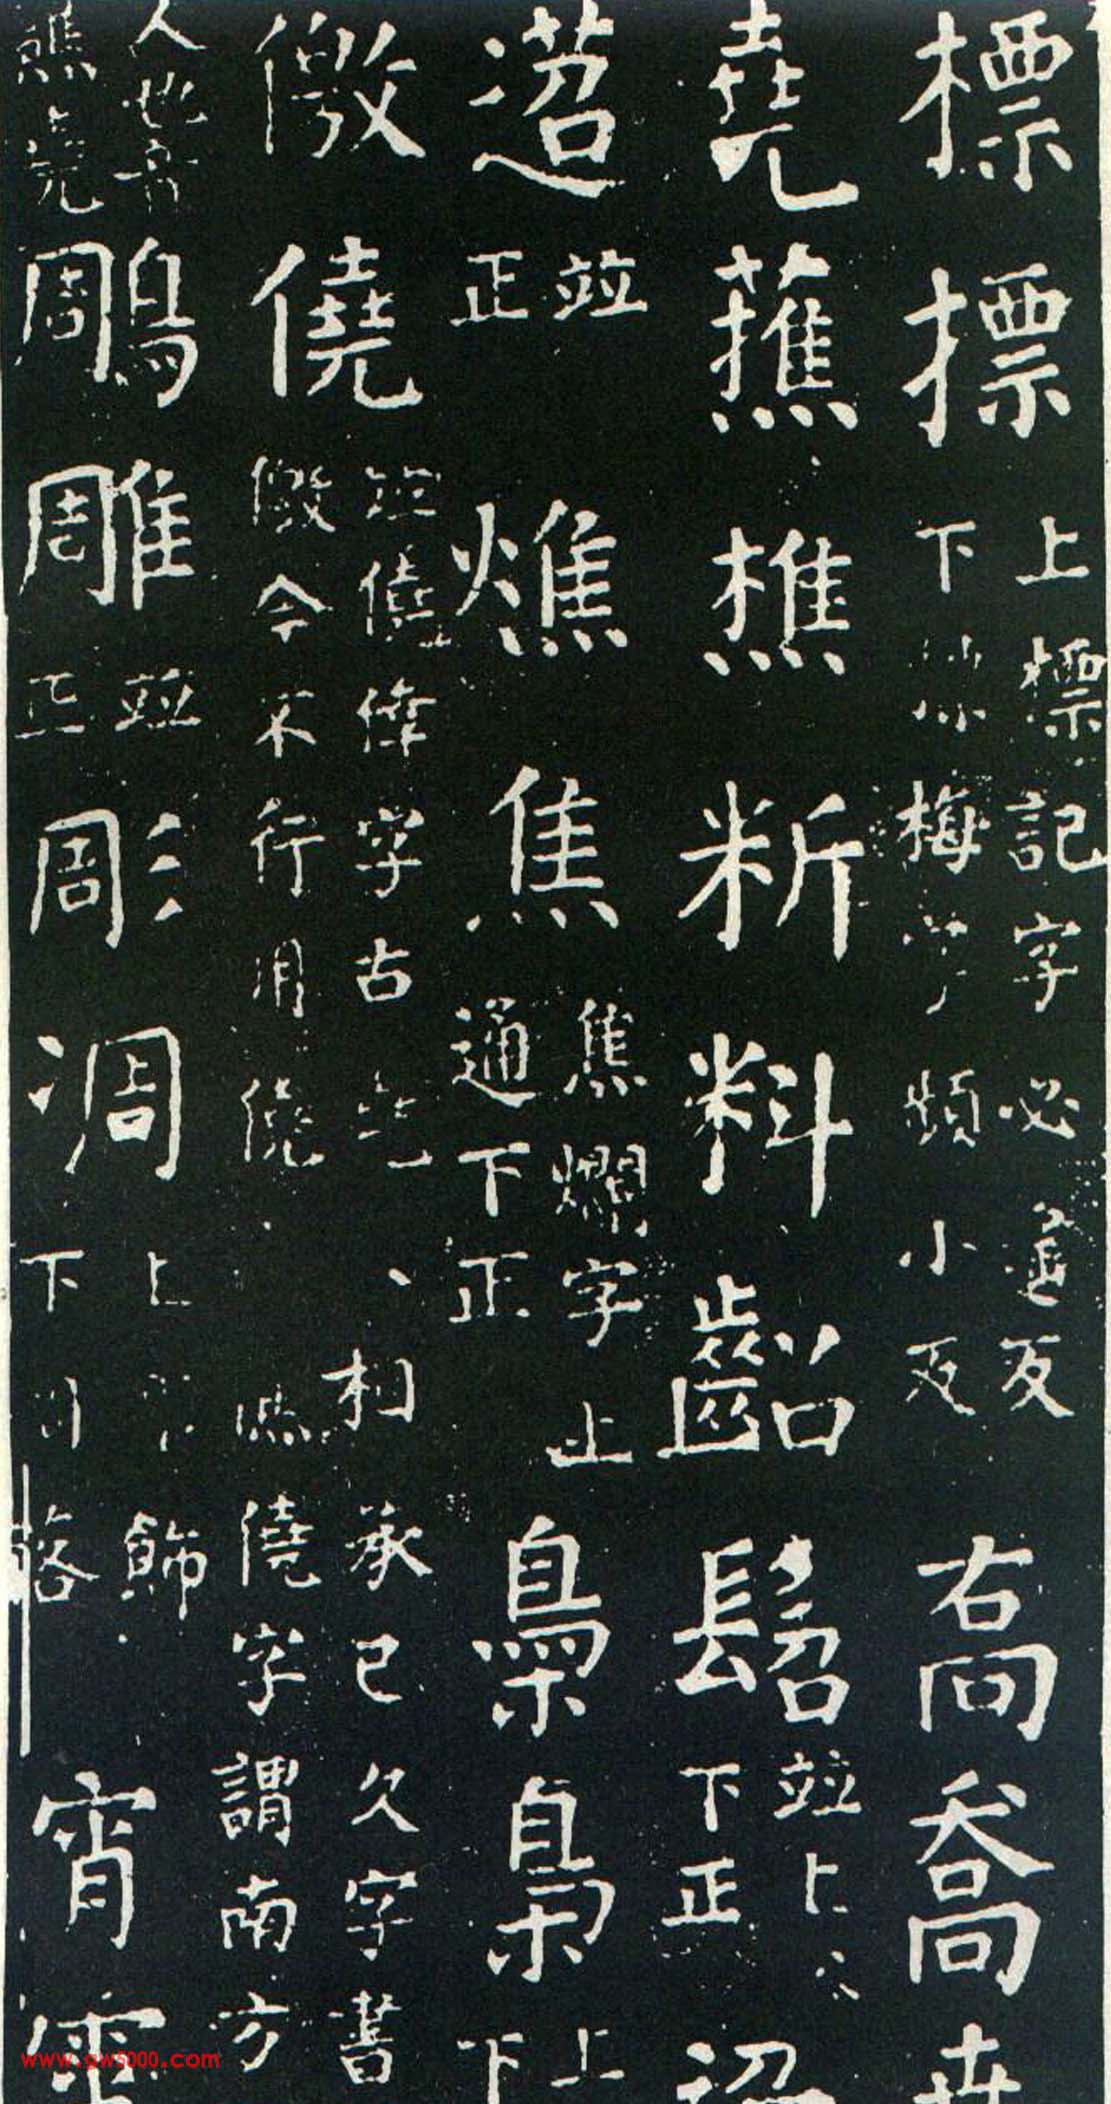 標摽 上標記字必遥反 下摽梅字頻小反 喬
尭藮樵料齠髫 並上 下正
並正 燋焦 焦爛字上通下正 梟梟 上下
僥 並僥倖字古 相承已久字書 今不行用僥 僥字謂南方
人也音 堯 鵰雕 並正 彫凋 上 飾 下 落 宵霄
www.gw5000.com